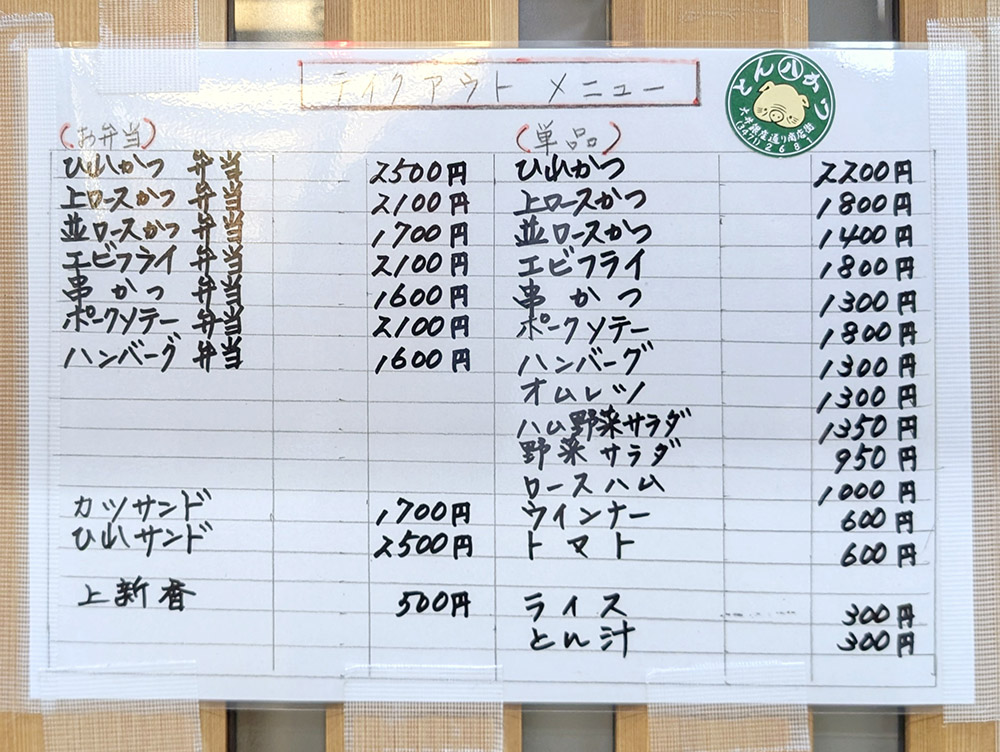 テイクアウト メニュー
とん八かつ
大井銀座通り商店街
(3471)2681
(お弁当)
ひれかつ 弁当 2500円
上ロースかつ 弁当 2100円
並ロースかつ 弁当 1700円
エビフライ 弁当 2100円
串かつ 弁当 1600円
ポークソテー 弁当 2100円
ハンバーグ 弁当 1600円
カツサンド 1700円
ひれサンド 2500円
上新香 500円
(単品)
ひれかつ 2200円
上ロースかつ 1800円
並ロースかつ 1400円
エビフライ 1800円
串かつ 1300円
ポークソテー 1800円
ハンバーグ 1300円
オムレツ 1300円
ハム野菜サラダ 1350円
野菜サラダ 950円
ロースハム 1000円
ウインナー 600円
トマト 600円
ライス 300円
とん汁 300円